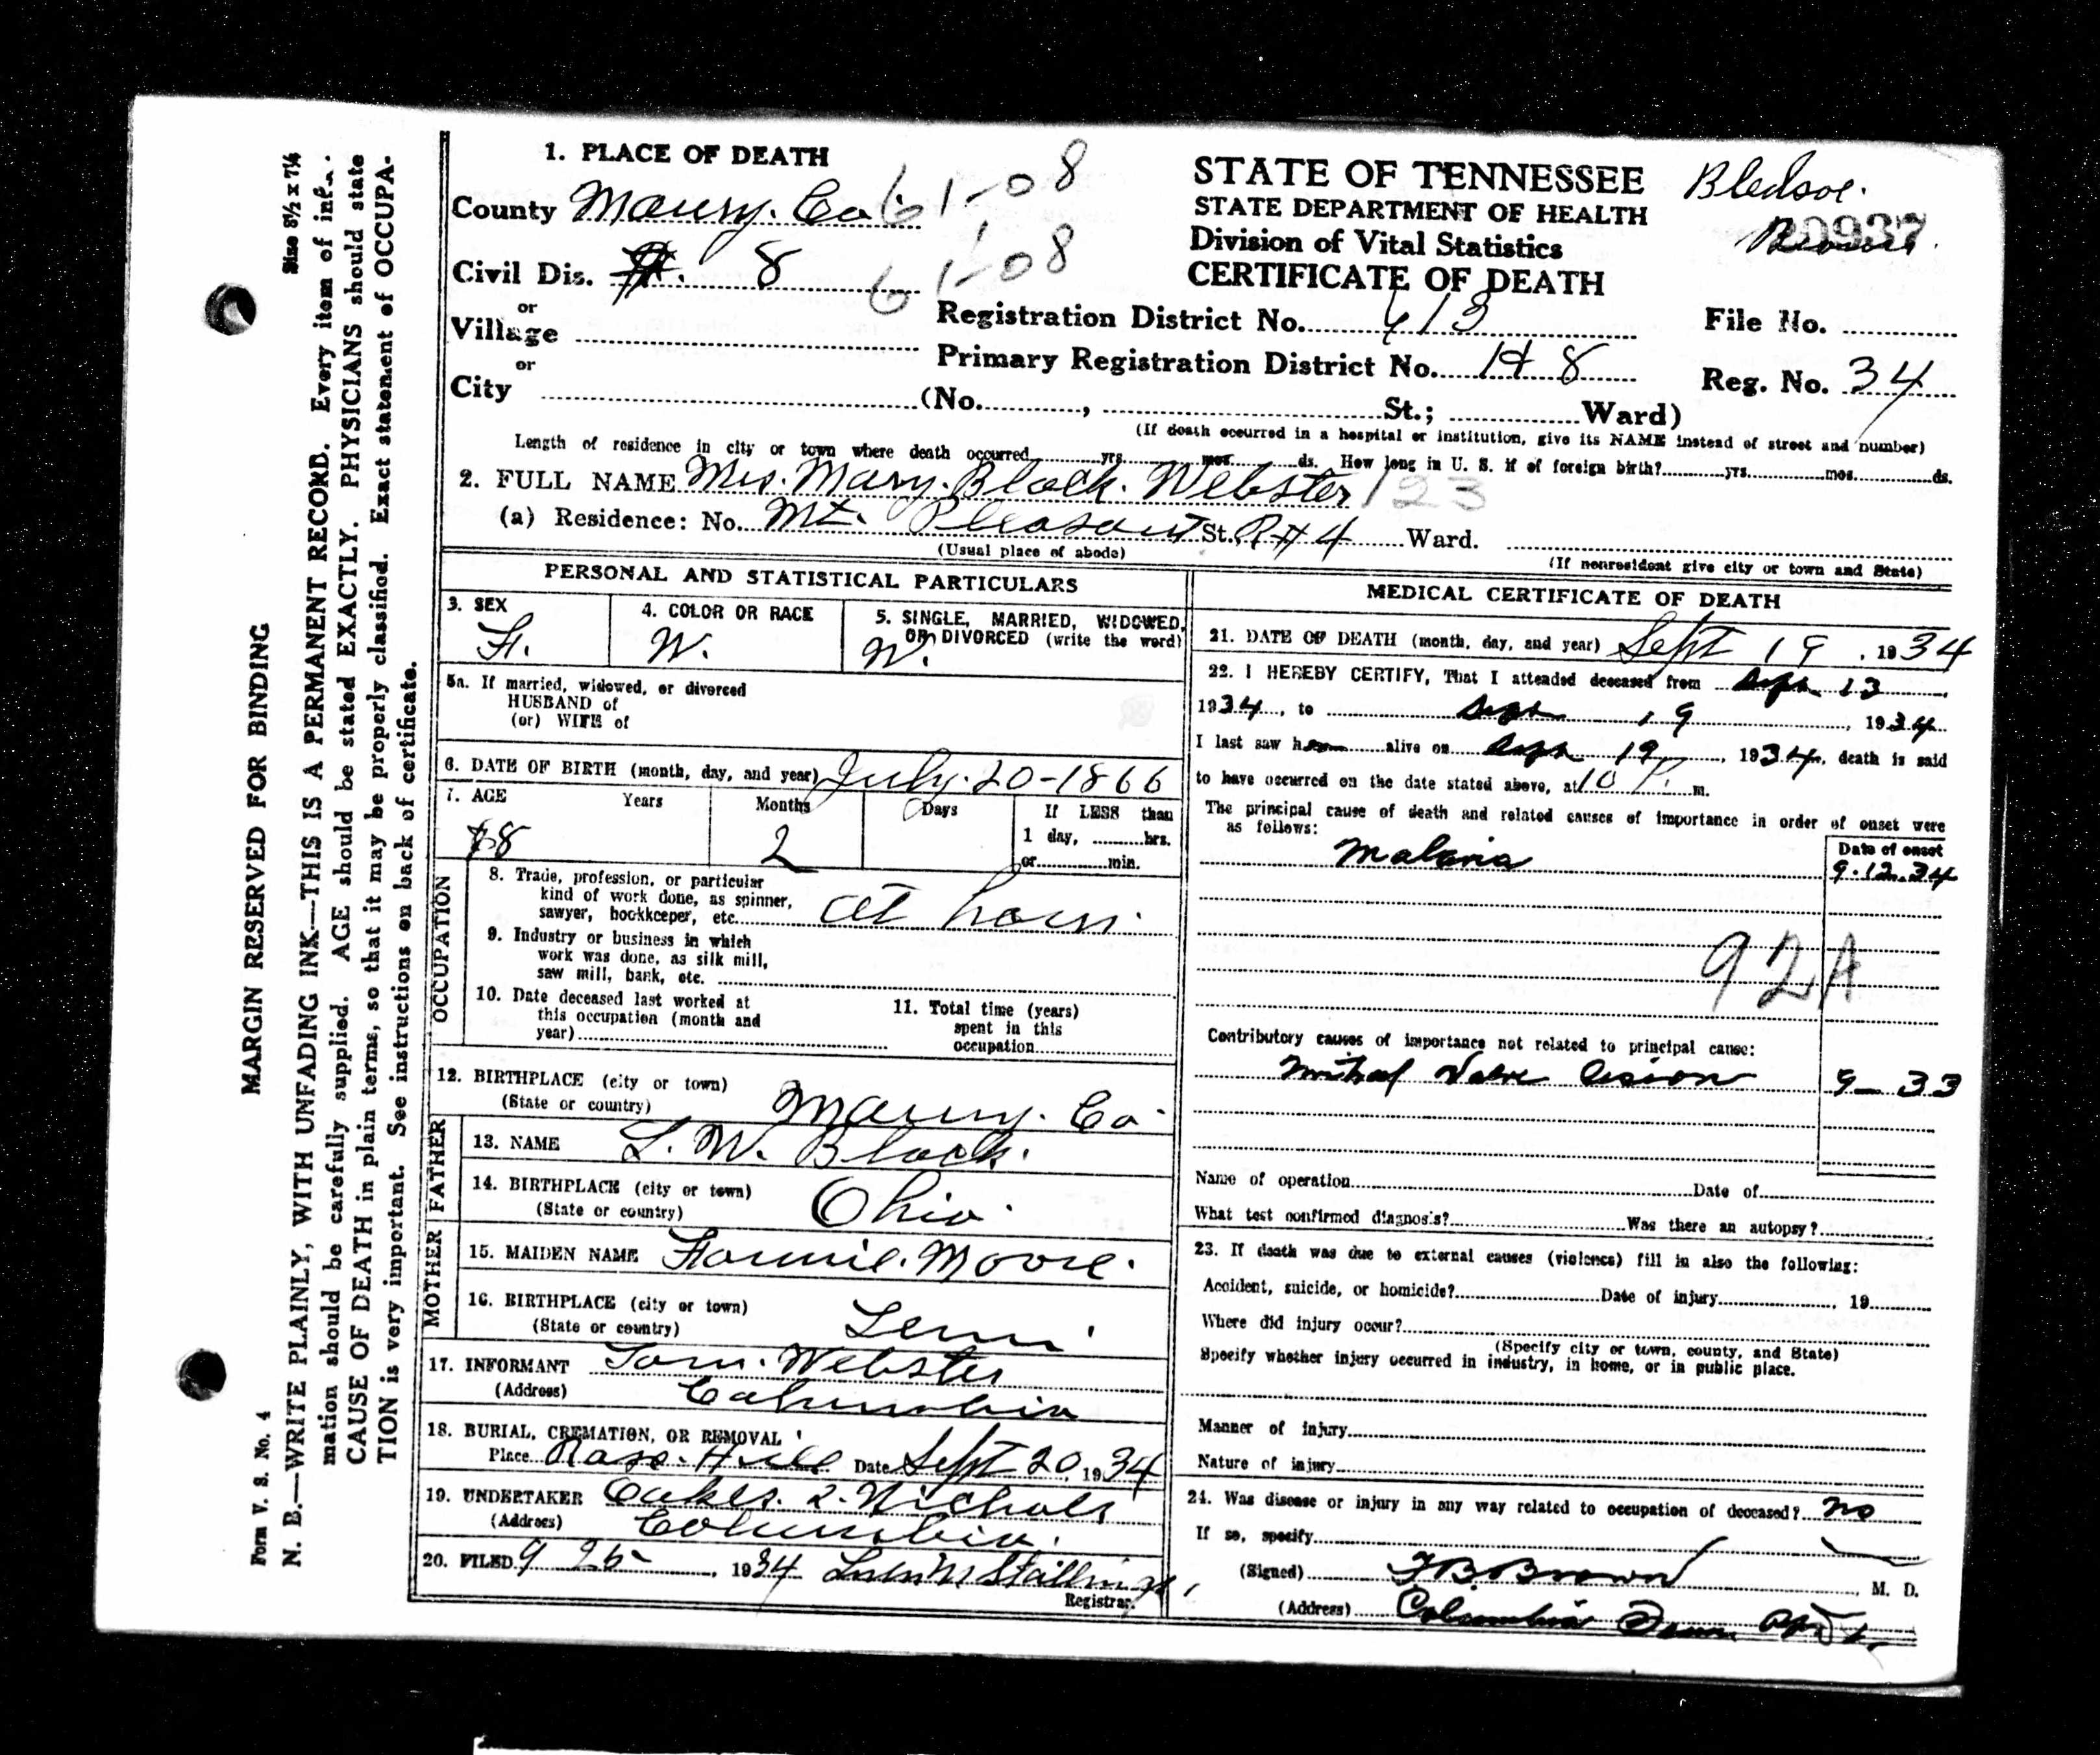 Size 8½ x 7¼
MARGIN RESERVED FOR BINDING
N. B.—WRITE PLAINLY, WITH UNFADING INK—THIS IS A PERMANENT RECORD. Every item of infor-
mation should be carefully supplied. AGE should be stated EXACTLY. PHYSICIANS should state
CAUSE OF DEATH in plain terms, so that it may be properly classified. Exact statement of OCCUPA-
TION is very important. See instructions on back of certificate.
Form V. S. No. 4
1. PLACE OF DEATH
County Maury. Co. 61-08
Civil Dis. 8 61-08
or
Village
or
City (No. , St.; Ward)
STATE OF TENNESSEE
STATE DEPARTMENT OF HEALTH
Division of Vital Statistics
CERTIFICATE OF DEATH
Bledsoe.
20937
Registration District No. 613
File No.
Primary Registration District No. 8
Reg. No. 34
(If death occurred in a hospital or institution, give its NAME instead of street and number)
Length of residence in city or town where death occurred yrs. mos. ds. How long in U. S. if of foreign birth? yrs. mos. ds.
2. FULL NAME Mrs. Mary. Black. Webster 123
(a) Residence: No. Mt. Pleasant St. R#4 Ward.
(Usual place of abode) (If nonresident give city or town and State)
PERSONAL AND STATISTICAL PARTICULARS
3. SEX
F.
4. COLOR OR RACE
W.
5. SINGLE, MARRIED, WIDOWED,
OR DIVORCED (write the word)
W.
5a. If married, widowed, or divorced
HUSBAND of
(or) WIFE of
6. DATE OF BIRTH (month, day, and year) July. 20-1866
7. AGE Years Months Days If LESS than
1 day, hrs.
or min.
68 2
OCCUPATION
8. Trade, profession, or particular
kind of work done, as spinner,
sawyer, bookkeeper, etc. at hom.
9. Industry or business in which
work was done, as silk mill,
saw mill, bank, etc.
10. Date deceased last worked at
this occupation (month and
year)
11. Total time (years)
spent in this
occupation
12. BIRTHPLACE (city or town)
(State or country) Maury. Co.
FATHER
13. NAME L. W. Black.
14. BIRTHPLACE (city or town)
(State or country) Ohio.
MOTHER
15. MAIDEN NAME Fannie. Moore.
16. BIRTHPLACE (city or town)
(State or country) Tenn.
17. INFORMANT Tom. Webster
(Address) Columbia
18. BURIAL, CREMATION, OR REMOVAL
Place Rose. Hill Date Sept 20, 1934
19. UNDERTAKER Oakes. & Nichols
(Address) Columbia.
20. FILED 9 26 , 1934 Stallings,
Registrar.
MEDICAL CERTIFICATE OF DEATH
21. DATE OF DEATH (month, day, and year) Sept 19 , 1934
22. I HEREBY CERTIFY, That I attended deceased from Sept 13
1934, to Sept 19 , 1934
I last saw her alive on Sept 19 , 1934, death is said
to have occurred on the date stated above, at 10 P. m.
The principal cause of death and related causes of importance in order of onset were
as follows:
Date of onset
Malaria 9.12.34
92A
Contributory causes of importance not related to principal cause:
Mitral Valve Lesion 9-33
Name of operation Date of
What test confirmed diagnosis? Was there an autopsy?
23. If death was due to external causes (violence) fill in also the following:
Accident, suicide, or homicide? Date of injury , 19
Where did injury occur?
(Specify city or town, county, and State)
Specify whether injury occurred in industry, in home, or in public place.
Manner of injury
Nature of injury
24. Was disease or injury in any way related to occupation of deceased? no
If so, specify
(Signed) Brown , M. D.
(Address) Columbia Tenn